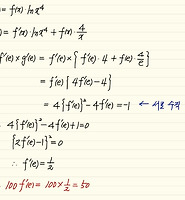 = f(x)·ln x⁴
) = f'(x)·ln x⁴ + f(x)·4/x
f'(e)×g'(e) = f'(e)×{f'(e)·4 + f(e)·4/e}
= f'(e){4f'(e)-4}
= 4{f'(e)}²-4f'(e) = -1 ←
4{f'(e)}²-4f'(e)+1=0
{2f'(e)-1}²=0
∴ f'(e)=1/2
100f'(e) = 100×1/2 = 50